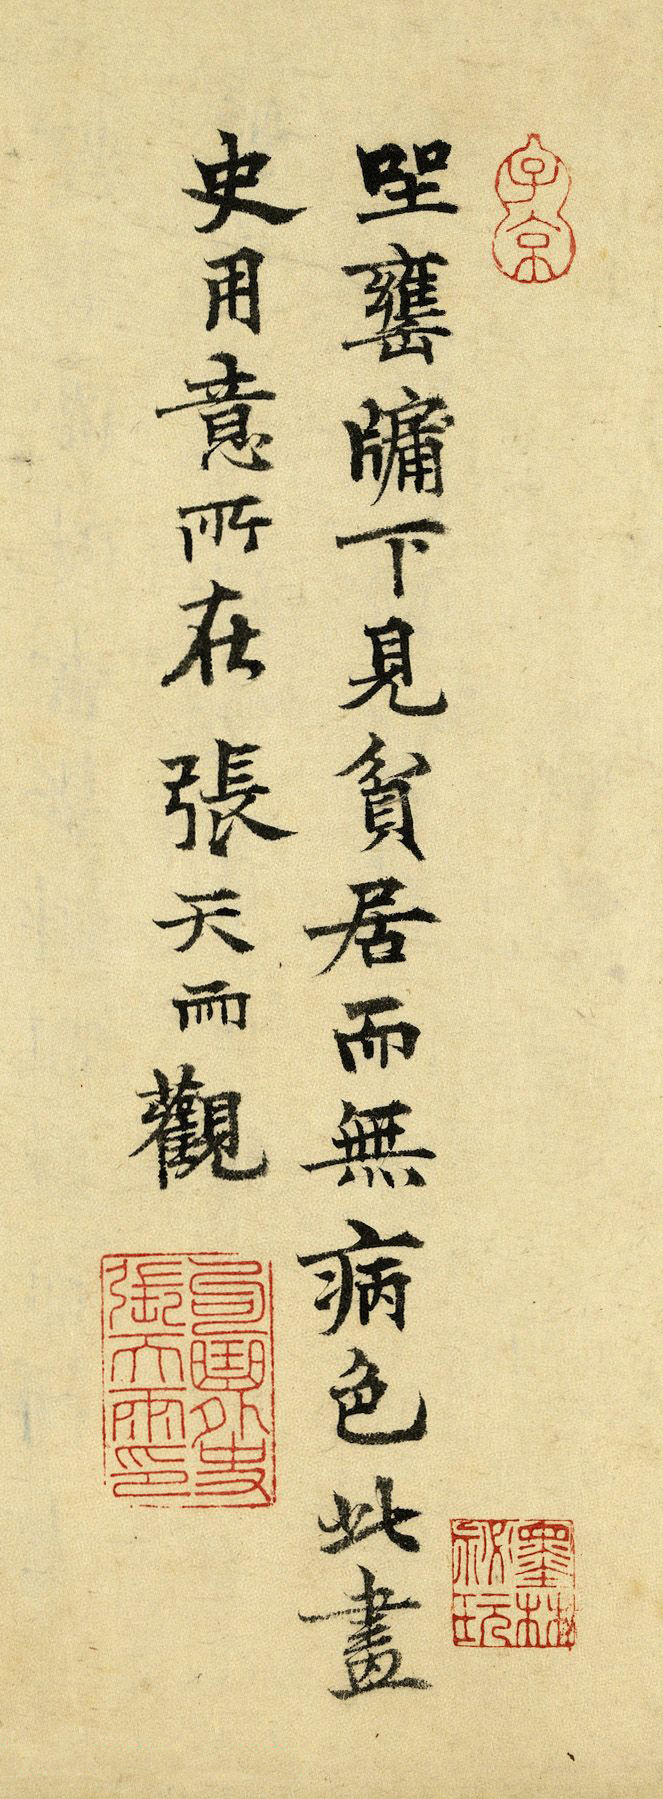 子京
坐罋牖下見貧居而無病色此畫
史用意所在 張天雨觀
句曲外史
張天雨印
墨林
秘玩